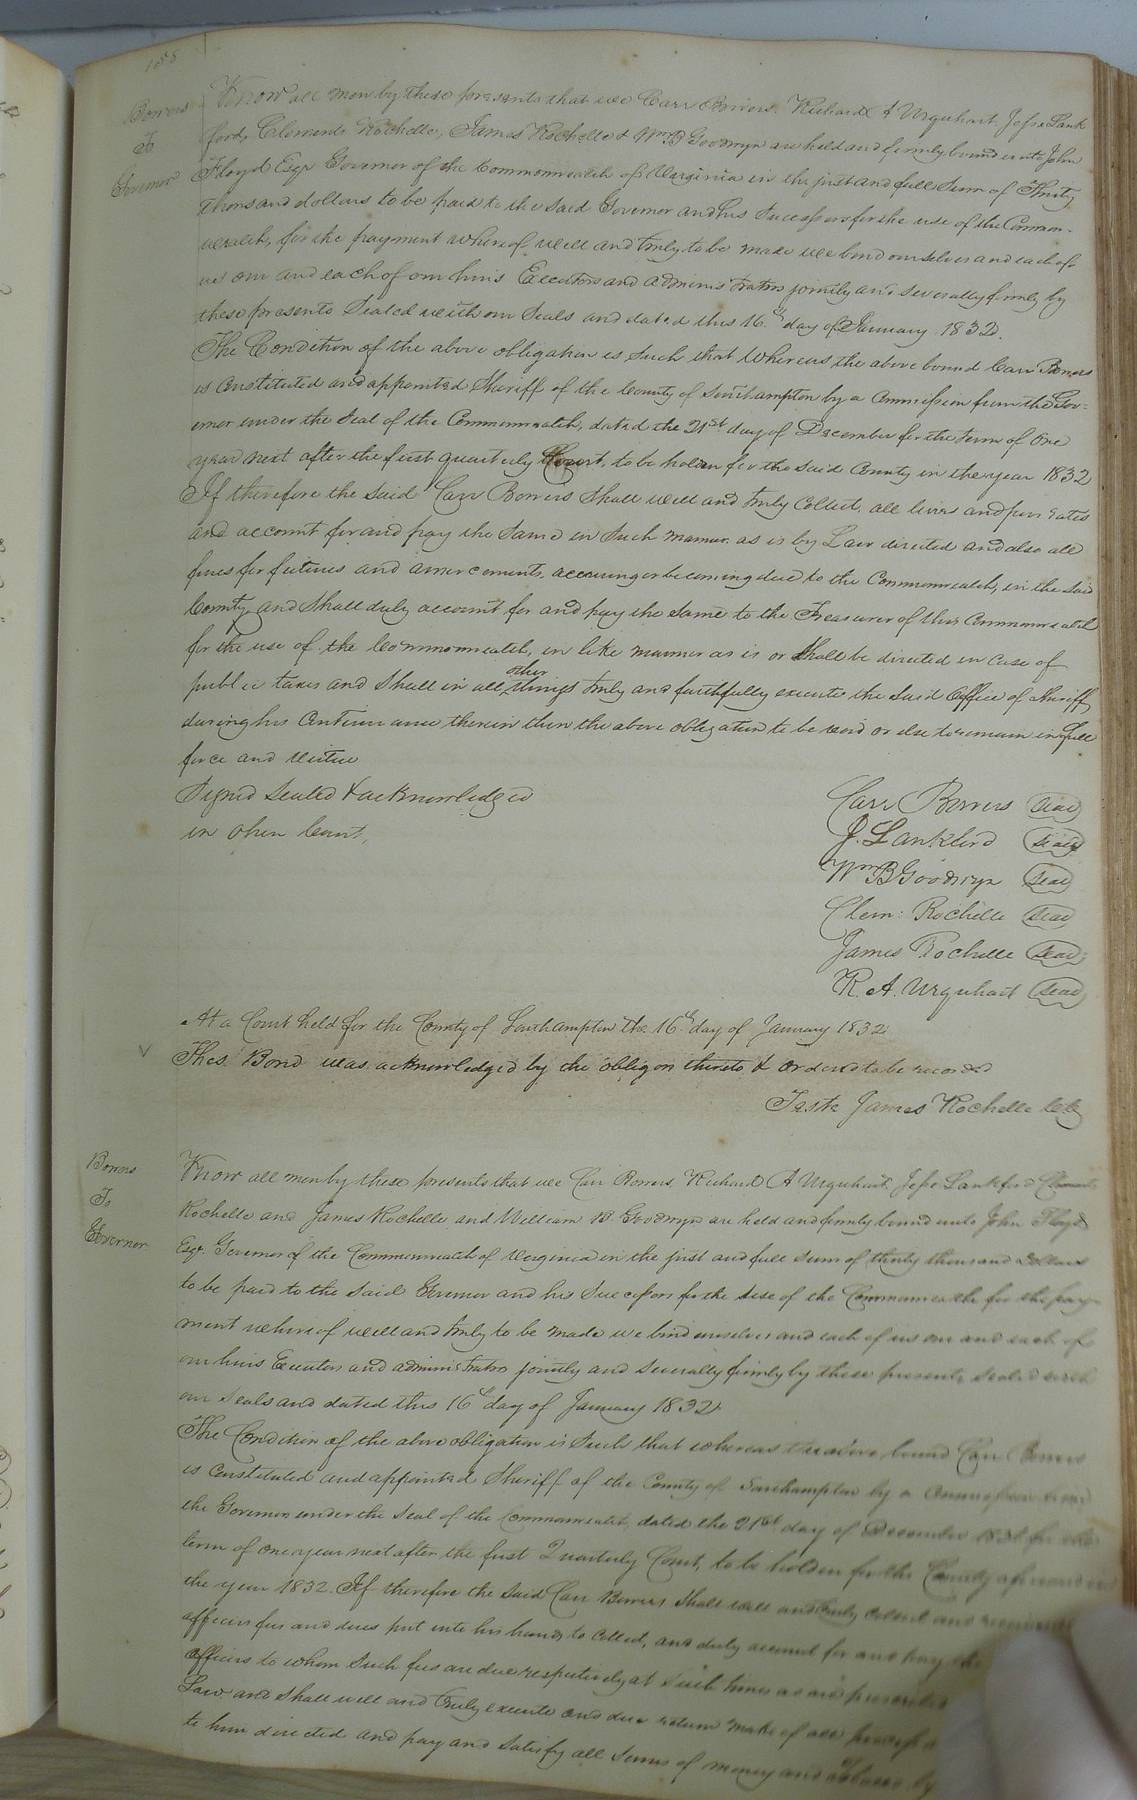 Bowers
To
Governor
Know all men by these presents that we Carr Bowers Richard A Urquhart Jesse Lank
ford, Clements Rochelle, James Rochelle & Wm B Goodwyn are held and firmly bound unto John
Floyd Esqr Governor of the Commonwealth of Virginia in the just and full Sum of Thirty
thousand dollars to be paid to the said Governor and his Successors for the use of the Common-
wealth, for the payment whereof well and truly to be made we bind ourselves and each of
us our and each of our heirs Executors and administrators jointly and severally firmly by
these presents Sealed with our Seals and dated this 16th day of January 1832.
The Condition of the above obligation is such that Whereas the above bound Carr Bowers
is Constituted and appointed Sheriff of the County of Southampton by a Commission from the Gov-
ernor under the Seal of the Commonwealth, dated the 21st day of December for the term of one
year next after the first quarterly Court, to be holden for the said County in the year 1832
If therefore the said Carr Bowers Shall well and truly Collect all levies and poor rates
and account for and pay the same in such manner as is by Law directed and also all
fines forfeitures and amercements, accruing or becoming due to the Commonwealth, in the said
County and Shall duly account for and pay the same to the Treasurer of this Commonwealth
for the use of the Commonwealth, in like manner as is or Shall be directed in case of
public taxes and Shall in all other things truly and faithfully execute the said Office of Sheriff
during his Continuance therein then the above obligation to be void or else to remain in full
force and virtue
Signed Sealed & acknowledged
in open Court,
Carr Bowers Seal
J. Lankford Seal
Wm B Goodwyn Seal
Clem: Rochelle Seal
James Rochelle Seal
R. A. Urquhart Seal
At a Court held for the County of Southampton the 16th day of January 1832
This Bond was acknowledged by the obligors thereto & Ordered to be recorded
Teste James Rochelle Clk
Bowers
To
Governor
Know all men by these presents that we Carr Bowers Richard A Urquhart Jesse Lankford Clements
Rochelle and James Rochelle and William B. Goodwyn are held and firmly bound unto John Floyd
Esqr. Governor of the Commonwealth of Virginia in the just and full sum of thirty thousand Dollars
to be paid to the said Governor and his Successors for the use of the Commonwealth for the pay-
ment whereof well and truly to be made we bind ourselves and each of us our and each of
our heirs Executors and administrators jointly and severally firmly by these presents Sealed with
our Seals and dated this 16th day of January 1832
The Condition of the above obligation is Such that whereas the above bound Carr Bowers
is Constituted and appointed Sheriff of the County of Southampton by a Commission from
the Governor under the Seal of the Commonwealth, dated the 21st day of December 1831 for the
term of one year next after the first Quarterly Court, to be holden for the County aforesaid in
the year 1832. If therefore the said Carr Bowers Shall well and truly Collect and
officers fees and dues put into his hands to Collect, and duly account for and pay the
officers to whom Such fees are due respectively at Such times as are prescribed
Law and Shall well and truly execute and due return make of all
to him directed and pay and satisfy all Sums of money and tobacco by